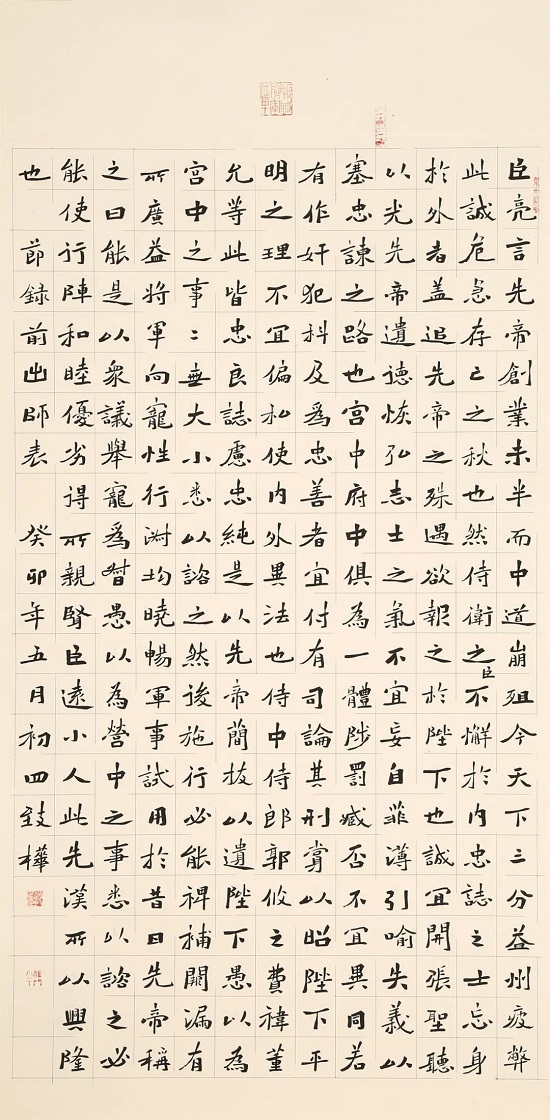 臣亮言先帝創業未半而中道崩殂今天下三分益州疲弊
此誠危急存亡之秋也然侍衛之臣不懈於內忠誌之士忘身
於外者蓋追先帝之殊遇欲報之於陛下也誠宜開張聖聽
以光先帝遺德恢弘志士之氣不宜妄自菲薄引喻失義以
塞忠諫之路也宮中府中俱為一體陟罰臧否不宜異同若
有作奸犯科及為忠善者宜付有司論其刑賞以昭陛下平
明之理不宜偏私使內外異法也侍中侍郎郭攸之費禕董
允等此皆忠良誌慮忠純是以先帝簡拔以遺陛下愚以為
宮中之事〻無大小悉以諮之然後施行必能裨補闕漏有
所廣益將軍向寵性行淑均曉暢軍事試用於昔日先帝稱
之曰能是以衆議舉寵為督愚以為營中之事悉以諮之必
能使行陣和睦優劣得所親賢臣遠小人此先漢所以興隆
也 節錄前出師表 癸卯年五月初四 致樺